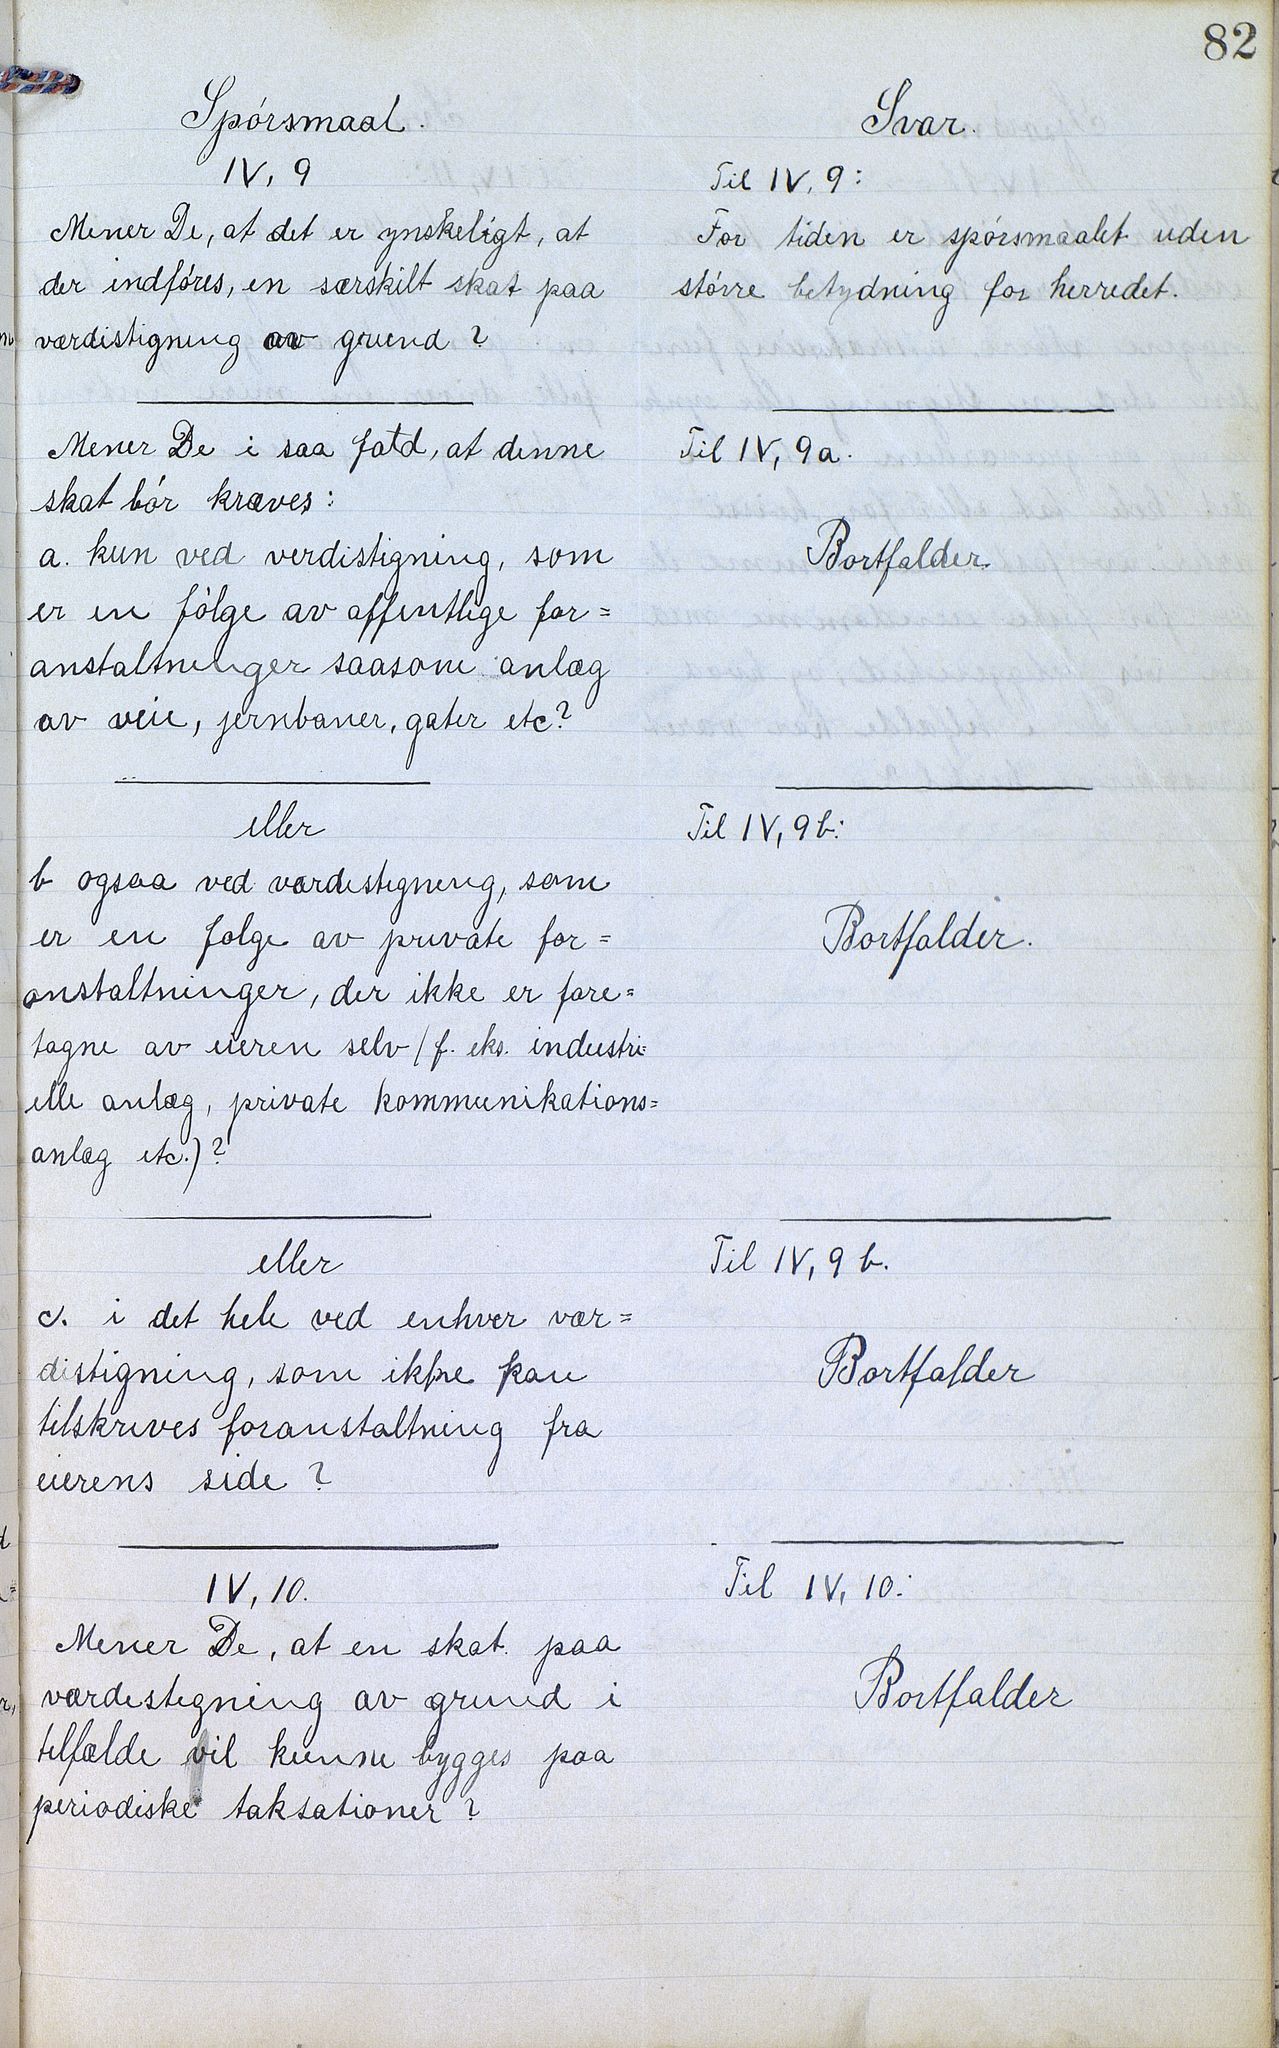 82
Spórsmaal.
IV, 9
Mener De, at det er ynskeligt, at
der indføres, en særskilt skat paa
værdistigning av grund?
Mener De i saa fald, at denne
skat bór kræves:
a. kun ved verdistigning, som
er en fólge av offentlige for=
anstaltninger saasom anlæg
av veie, jernbaner, gater etc?
eller
b ogsaa ved værdistigning, som
er en folge av private for=
anstaltninger, der ikke er fore=
tagne av eieren selv (f. eks. industri=
elle anlæg, private kommunikations=
anlæg etc.)?
eller
c. i det hele ved enhver vær=
distigning, som ikke kan
tilskrives foranstaltning fra
eierens side?
IV, 10.
Mener De, at en skat paa
værdistigning av grund i
tilfælde vil kunne bygges paa
periodiske taksationer?
Svar.
Til IV, 9:
For tiden er spórsmaalet uden
stórre betydning for herredet.
Til IV, 9a.
Bortfalder.
Til IV, 9b:
Bortfalder.
Til IV, 9 b.
Bortfalder
Til IV, 10:
Bortfalder